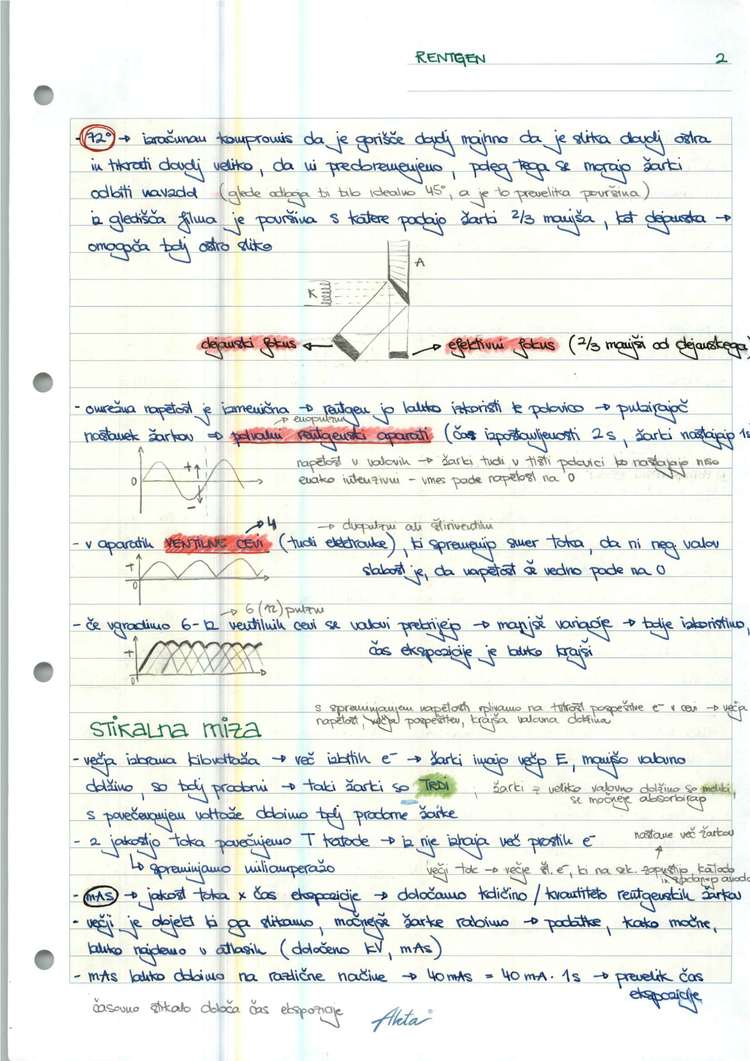 RENTGEN 2
- 72° → izračunan kompromis da je gorišče dovolj majhno da je slika dovolj ostra
in hkrati dovolj veliko, da ni preobremenjeno, poleg tega se morajo žarki
odbiti navzdol (glede odboja bi bilo idealno 45°, a je to prevelika površina)
iz gledišča filma je površina s katere padajo žarki 2/3 manjša, kot dejanska →
omogoča bolj ostro sliko
A
K
dejanski fokus
efektivni fokus (2/3 manjši od dejanskega)
- omrežna napetost je izmenična → rentgen jo lahko izkoristi le polovico → pulzirajoč
→ enopulzni
nastanek žarkov ⇒ polvalni rentgenski aparati (čas izpostavljenosti 2s, žarki nastajajo 1s
napetost v valovih → žarki tudi v tisti polovici ko nastajajo niso
enako intenzivni - vmes pade napetost na 0
0 + -
→ 4 → dvopulzni ali štiriventilni
- v aparatih VENTILNE CEVI (tudi elektronke), ki spremenijo smer toka, da ni neg. valov
slabost je, da napetost še vedno pade na 0
+
0
→ 6 (12) pulzni
- če vgradimo 6-12 ventilnih cevi se valovi prekrijejo → manjše variacije → bolje izkoristimo,
čas ekspozicije je lahko krajši
+
0
s spreminjanjem napetosti vplivamo na hitrost pospešitve e⁻ v cevi → večja
napetost, večja pospešitev, krajša valovna dolžina
STIKALNA MIZA
- večja izbrana kilovoltaža → več izbitih e⁻ → žarki imajo večjo E, manjšo valovno
dolžino, so bolj prodorni → taki žarki so TRDI, žarki z veliko valovno dolžino so mehki,
se močneje absorbirajo
s povečevanjem voltaže dobimo bolj prodorne žarke
- z jakostjo toka povečujemo T katode → iz nje izhaja več prostih e⁻
nastane več žarkov
↳ spreminjamo miliamperažo
večji tok → večje št. e⁻, ki na sek. zapustijo katodo
in zadanejo anodo
- mAs → jakost toka x čas ekspozicije → določamo količino / kvantiteto rentgenskih žarkov
- večji je objekt ki ga slikamo, močnejše žarke rabimo → podatke, kako močne,
lahko najdemo v atlasih (določeno kV, mAs)
- mAs lahko dobimo na različne načine → 40 mAs = 40 mA · 1s → prevelik čas
ekspozicije
časovno stikalo določa čas ekspozicije
Akta